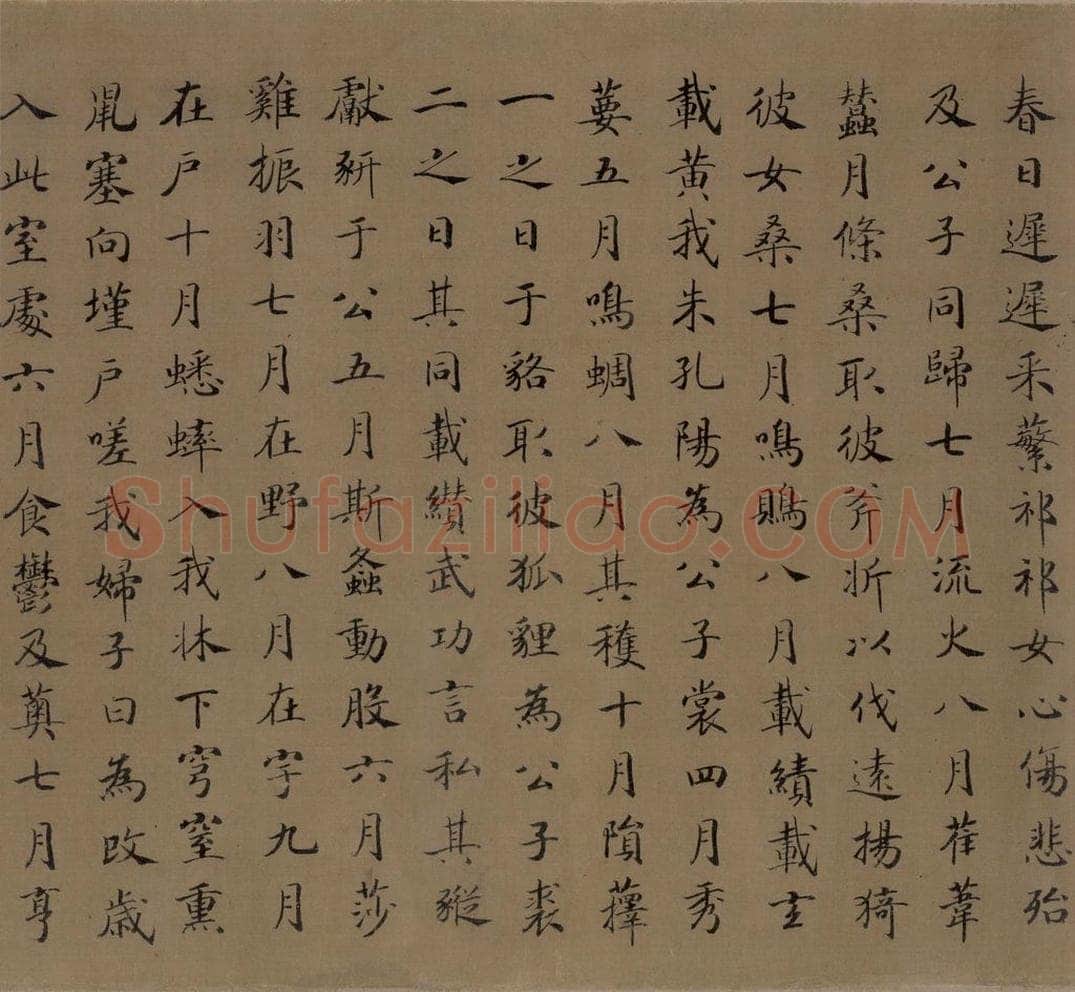 春日遲遲采蘩祁祁女心傷悲殆
及公子同歸七月流火八月萑葦
蠶月條桑取彼斧斨以伐遠揚猗
彼女桑七月鳴鵙八月載績載玄
載黃我朱孔陽為公子裳四月秀
葽五月鳴蜩八月其穫十月隕蘀
一之日于貉取彼狐貍為公子裘
二之日其同載纘武功言私其豵
獻豜于公五月斯螽動股六月莎
雞振羽七月在野八月在宇九月
在戶十月蟋蟀入我牀下穹窒熏
鼠塞向墐戶嗟我婦子曰為改歲
入此室處六月食鬱及薁七月亨
Shufaziliao.COM